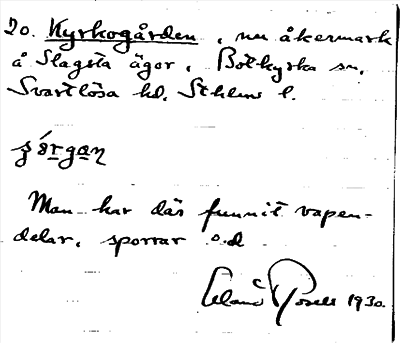 20. Kyrkogården, nu åkermark
å Slagsta ägor, Botkyrka sn,
Svartlösa hd. Sthlms l.
Man har där funnit vapen-
delar, sporrar o.d
1930.